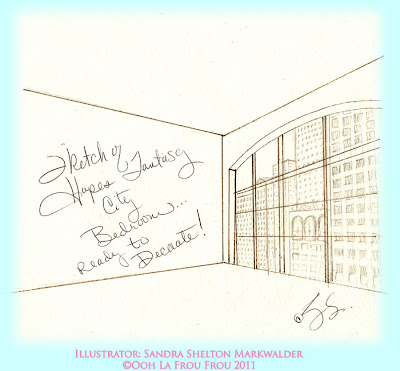 Sketch of
Hopes Fantasy
City
Bedroom...
Ready to
Decorate!
ILLUSTRATOR: SANDRA SHELTON MARKWALDER
©OOH LA FROU FROU 2011